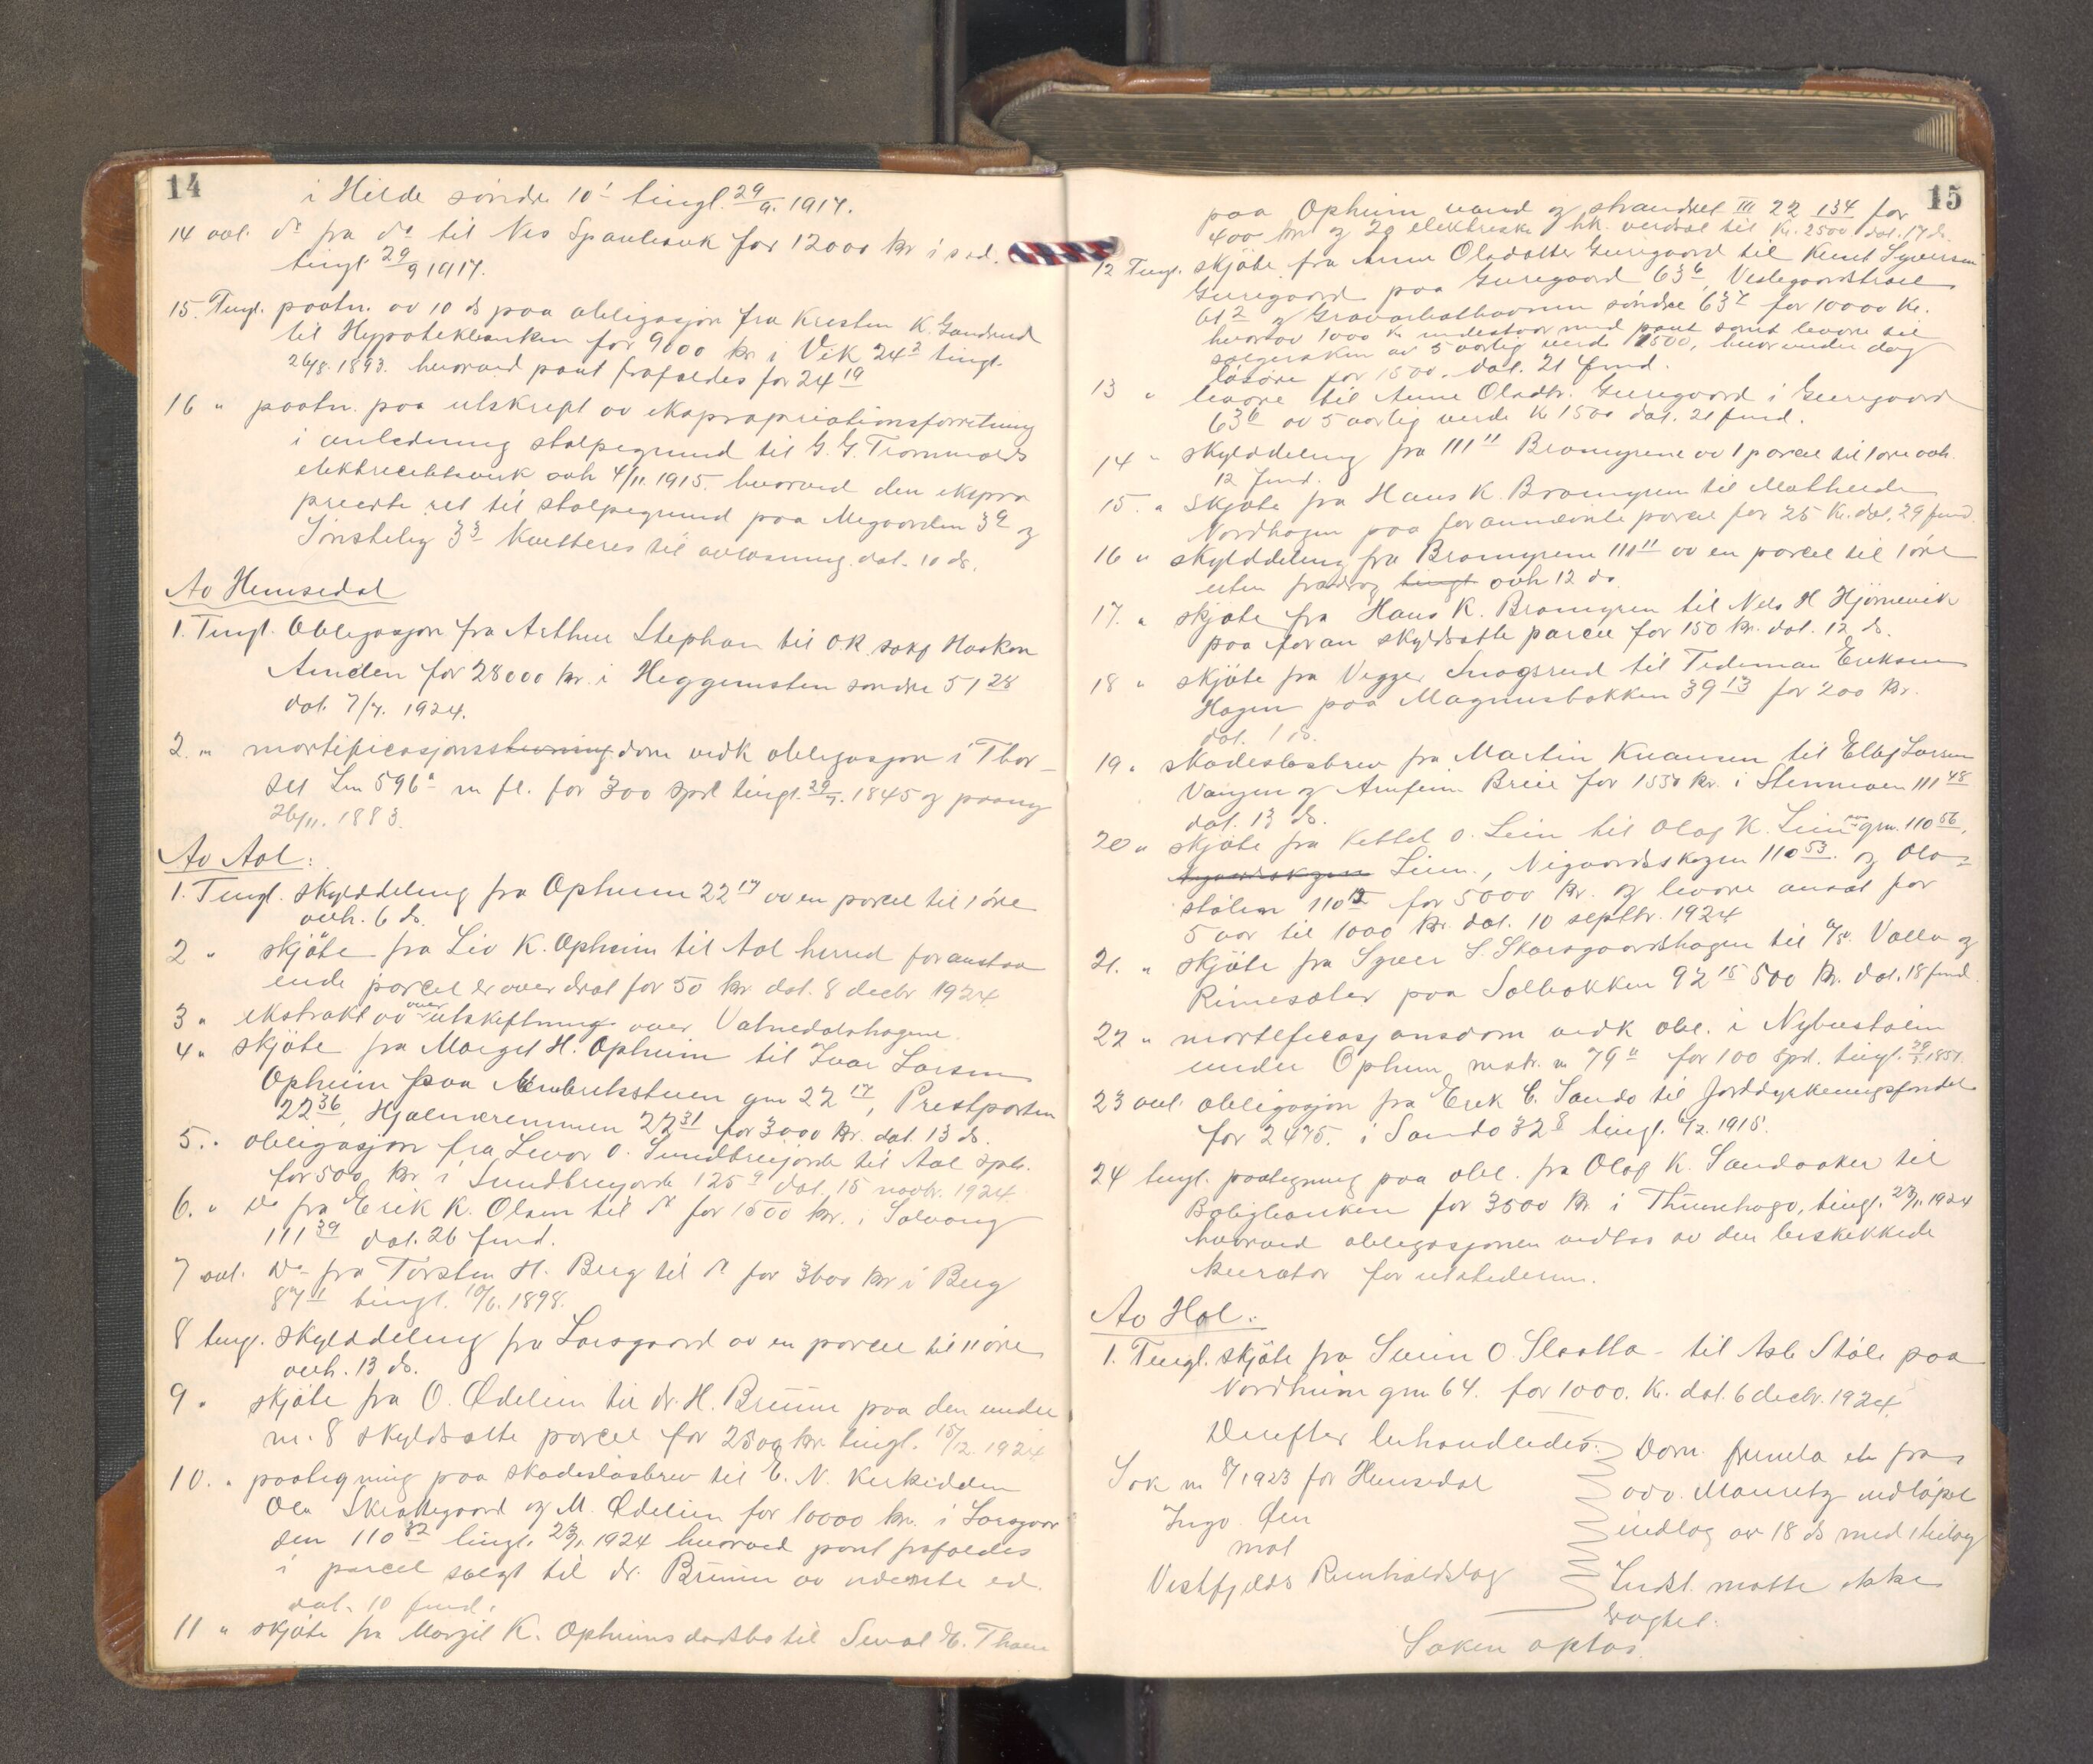 14
i Hilde söndre 10¹ tingl. 29/9. 1917.
14 avl. do fra do til Nes Sparebank for 12000 kr i s. ed.
tingl. 29/9 1917.
15. Tingl. paatn. av 10 ds paa obligasjon fra Kristen K. Sandrud
til Hypotekbanken for 9000 kr. i Vik 24² tingl.
26/8. 1893. hvorved pant frafaldes for 24¹⁹
16 " paatn. paa utskrift av ekspropriationsforretning
i anledning stolpegrund til G. G. Trommalds
elektricitetsverk avh 4/11. 1915. hvorved den ekspro
prierte ret til stolpegrund paa Megaarden 3⁹ og
3³ kvitteres til avlösning. dat. 10 ds.
Av Hemsedal
1. Tingl. Obligasjon fra Arthur Stephan til O.R. sakf Haakon
Amden for 28000 kr. i Heggensten söndre 51²⁸
dat. 7/7. 1924.
2. " mortifikasjonsdom vedk obligasjon i Thor-
set Lnr 596ᵃ m fl. for 300 spd tingl. 29/7. 1845 og paany
26/11. 1883.
Av Aal:
1. Tingl. Skylddeling fra Opheim 22¹⁷ av en parcel til 1 öre
avh. 6 ds.
2 " skjöte fra Liv K. Opheim til Aal herred foranstaa
ende parcel er overdrat for 50 kr dat. 8 decbr 1924
3 " ekstrakt av over utskiftning over Vatnedalshagene.
4 " skjöte fra Margit H. Opheim til Ivar Larsen
Opheim paa gnr 22¹⁷, Prestporten
22³⁶, Hjalmaremmen 22³¹ for 3000 kr. dat. 13 ds.
5. " obligasjon fra Levor O. Sundbreijorde til Aal spb.
for 500 kr i Sundbreijorde 125⁹ dat. 15 novbr. 1924
6. " Do fra Erik K. Olsen til do for 1500 kr. i Solvang
111³⁹ dat. 26 f.md.
7 avl. Do fra Torsten H. Berg til do for 3600 kr i Berg
87¹ tingl. 10/6. 1898.
8 tingl. skylddeling fra Larsgaard av en parcel til 11 öre
avh. 13 ds.
9 " skjöte fra O. Ödelien til dr. H. Bruun paa den under
nr. 8 skyldsatte parcel for 2500 kr tingl. 15/12. 1924
10. " paategning paa skadeslösbrev til E. N. Kirkedden
Ola Skrattegaard og M. Ödelien for 10000 kr. i Larsgaar
den 110³² tingl. 23/1. 1924 hvorved pant frafaldes
i parcel solgt til dr. Bruun av nævnte ed.
dat. 10 f.md.
11 " skjöte fra Margit K. Opheims dødsbo til Sevat E. Thoen
15
paa Opheim vand og strandret III 22 134 for
400 kr og 20 elektriske hk. verdsat til kr. 2500. dat. 17 ds.
12 Tingl. skjöte fra Anne Olsdatter Guregaard til Knut Syversen
Guregaard paa Guregaard 63⁶, Vestegaardstræe
61² og söndre 63⁷ for 10000 Kr.
hvorav 1000 kr indestaar med pant samt levøre til
sælgersken av 5 aarlig verdi 1500, hvorunder dog
lösöre for 1500. dat. 21 f.md.
13 " levøre til Anne Olsdtr. Guregaard i Guregaard
63⁶ av 5 aarlig verdi kr 1500 dat. 21 f.md.
14 " skylddeling fra 111¹¹ Bromyrene av 1 parcel til 1 öre avh.
12 f.md.
15. " Skjöte fra Hans K. Bromyren til Mathilde
Nordhagen paa forannævnte parcel for 25 Kr. dat. 29 f.md.
16 " skylddeling fra Bromyrene 111¹¹ av en parcel til 1 öre
uten fradrag tingl avh 12 ds.
17. " skjöte fra Hans K. Bromyren til Nels H Hjörnevik
paa foran skyldsatte parcel for 150 kr. dat. 12 ds.
18 " skjöte fra Vegger Snogsrud til Tideman Eriksen
Hagen paa Magnusbakken 39¹³ for 200 kr.
dat. 1 ds.
19 " skadeslösbrev fra Martin Knausen til Ellef Larsen
Vangen og Arnfinn Breie for 1550 kr. i Stenmoen 111⁴⁸
dat. 13 ds.
20 " skjöte fra Kittel O. Lien til Olaf K. Lien paa gnr. 110⁵⁶,
Lien., Nigaardsskogen 110⁵³. og Ola-
stölen 110¹² for 5000 kr. og levøre ansat for
5 aar til 1000 kr. dat. 10 septbr. 1924
21. " skjöte fra Syver S. Skarsgaardshagen til A/S. Valla og
Rimesæter paa Solbakken 92¹⁵ 500 kr. dat. 18 f.md.
22 " mortifikasjonsdom vedk obl. i Nybustölen
under Opheim matr. nr 79ᵃ for 100 Spd. tingl. 1851.
23 avl. obligasjon fra Erik E. Sando til Jorddyrkningsfondet
for 2475. i Sando 32⁸ tingl. 4/2. 1915.
24 tingl. paategning paa obl. fra Olaf K. Sandaaker til
Boligbanken for 3500 Kr. i Thunhage, tingl. 23/11. 1924
hvorved obligasjonen vedtas av den beskikkede
kurator for utstederen.
Av Hol:
1. Tingl. skjöte fra Svein O. Slaatta til Asle Stöle paa
Nordheim gnr 64. for 1000. Kr. dat. 6 decbr. 1924.
Derefter behandledes:
Sak nr 8/1923 for Hemsedal
Ingv. Öen
mot
Vestfjelds Renhaldslag
Dom. fremla et fra
adv. Mauritz indløpet
indlæg av 18 ds med 1 bilag
Indst. mötte ikke
Saken optas.